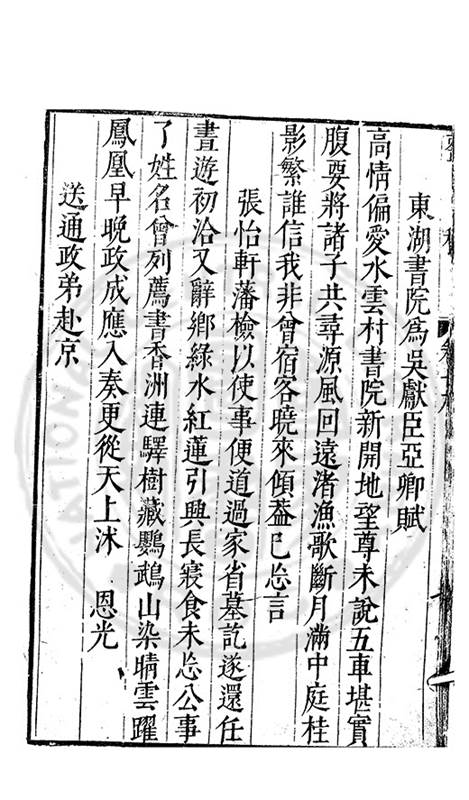 東湖書院爲吳獻臣亞卿賦
高情偏愛水雲村書院新開地望尊未說五車堪實
腹要將諸子共尋源風回遠渚漁歌斷月滿中庭桂
影繁誰信我非曾宿客曉來傾葢已忘言
張怡軒藩檢以使事便道過家省墓訖遂還任
晝遊初洽又辭鄉綠水紅蓮引興長寢食未忘公事
了姓名曾列薦書香洲連驛樹藏鸚鵡山染晴雲躍
鳳凰早晚政成應入奏更從天上沐　恩光
送通政弟赴京